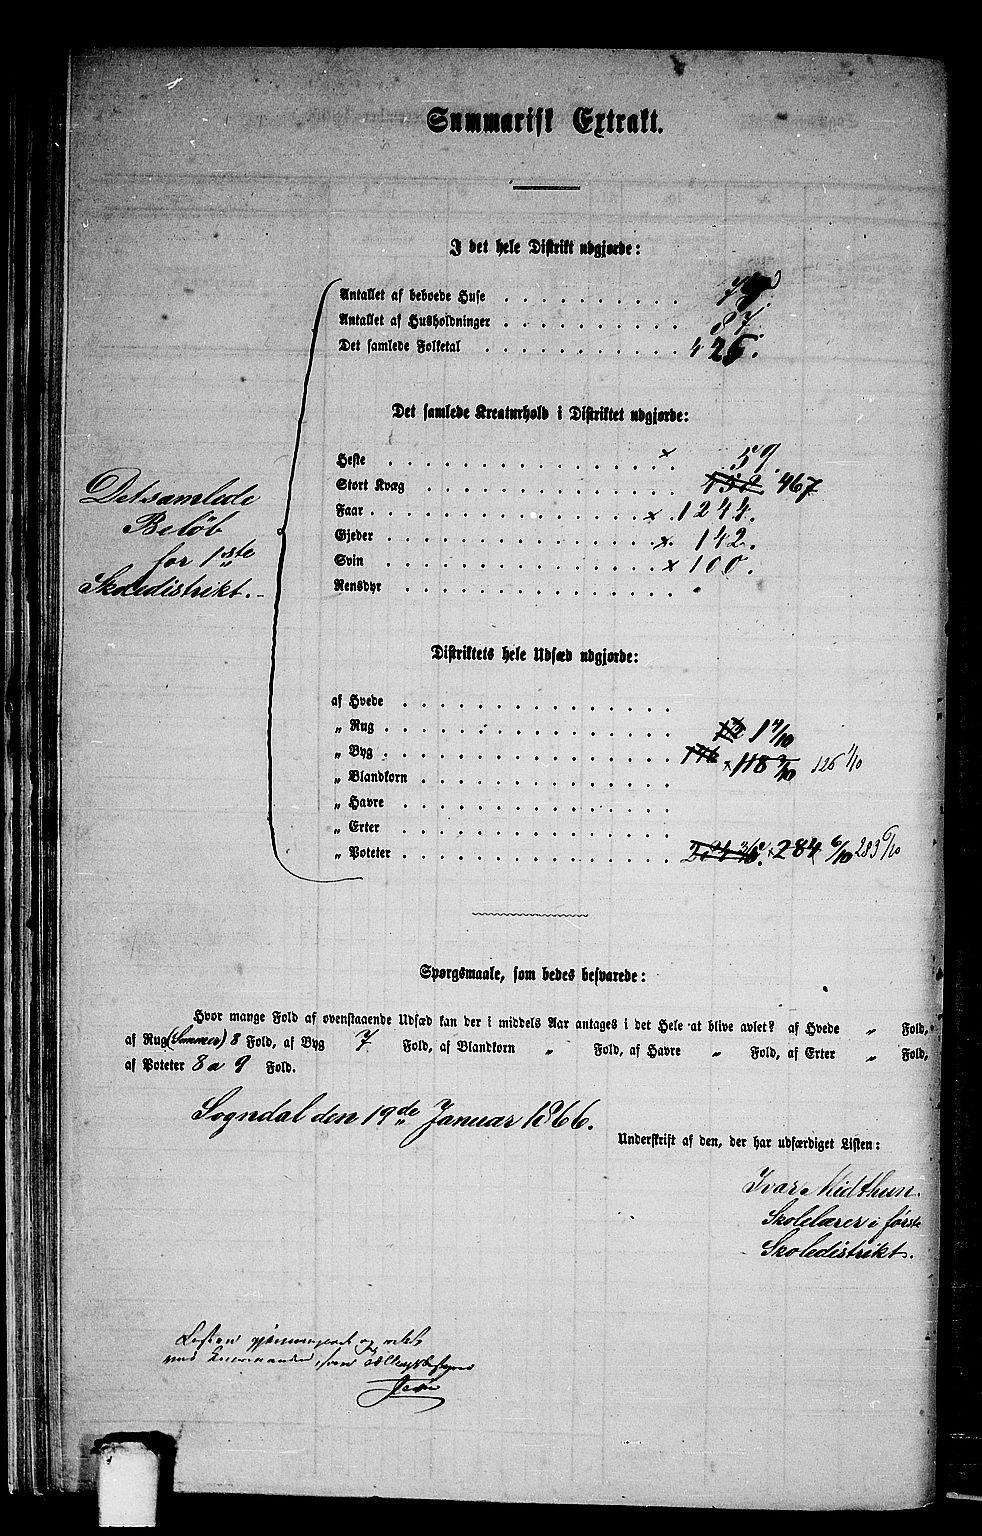 Summarisk Extrakt.
I det hele Distrikt udgjorde:
Antallet af beboede Huse
Antallet af Husholdninger 87.
Det samlede Folketal 425.
Det samlede Kreaturhold i Distriktet udgjorde:
Heste × 59.
Stort Kvæg 467
Faar × 1244.
Gjeder × 142.
Svin × 100.
Rensdyr
Det samlede
Beløb
for 1ste
Skoledistrikt.
Distriktets hele Udsæd udgjorde:
af Hvede
„ Rug 1 4/10
„ Byg × 118 126
„ Blandkorn
„ Havre
„ Erter
„ Poteter × 284 6/10 283 6/10
Spørgsmaale, som bedes besvarede:
Hvor mange Fold af ovenstaaende Udsæd kan der i middels Aar antages i det Hele at blive avlet? af Hvede „ Fold,
af Rug (Sommer) 8 Fold, af Byg 7 Fold, af Blandkorn „ Fold, af Havre „ Fold, af Erter „ Fold,
af Poteter 8 a 9 Fold.
Sogndal den 19de Januar 1866.
Underskrift af den, der har udfærdiget Listen:
Ivar Midthun.
Skolelærer i første
Skoledistrikt.
Listen og